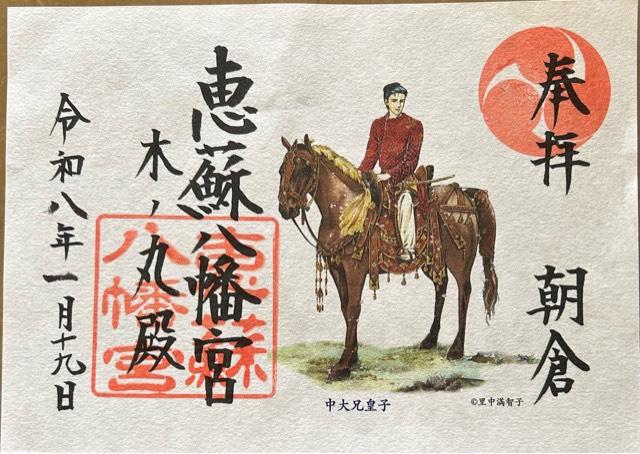 奉拝
朝倉
恵蘇八幡宮
木ノ丸殿
令和八年一月十九日
恵蘇
八幡宮
中大兄皇子
©里中満智子